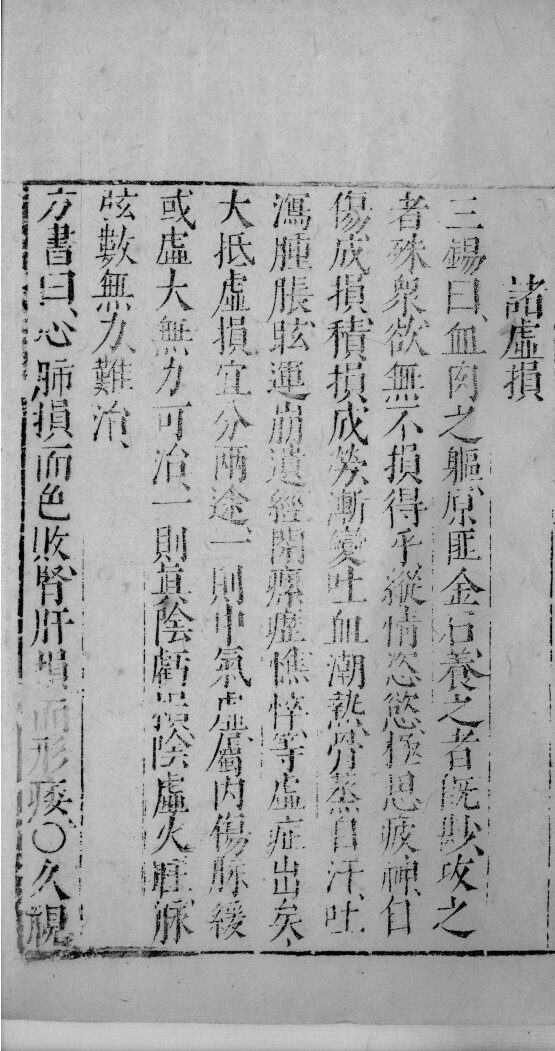 諸虛損
三錫曰、血肉之軀、原匪金石、養之者既尠、攻之
者殊衆、欲無不損得乎、縱情恣慾、極思疲神、自
傷成損、積損成勞、漸變吐血潮熱、骨蒸自汗、吐
瀉腫脹、眩運崩遺、經閉瘰癧、憔悴等虛症出矣、
大抵虛損宜分兩途、一則中氣虛屬內傷、脉緩
或虛大無力可治、一則真陰虧損、陰虛火旺、脉
弦數無力、難治、
方書曰、心肺損而色敗、腎肝損而形痿〇久視